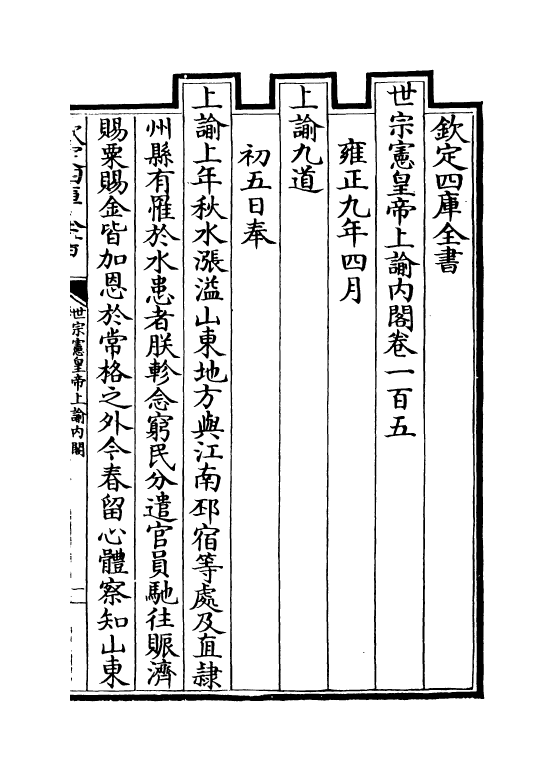 欽定四庫全書
世宗憲皇帝上諭內閣卷一百五
雍正九年四月
上諭九道
初五日奉
上諭上年秋水漲溢山東地方與江南邳宿等處及直隸
州縣有罹於水患者朕軫念窮民分遣官員馳往賑濟
賜粟賜金皆加恩於常格之外今春留心體察知山東
世宗憲皇帝上諭內閣